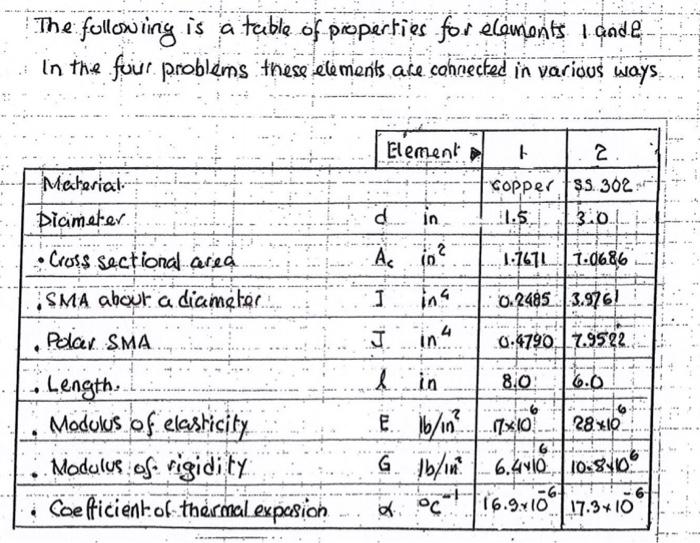 The following is a table of properties for elements 1 and 2
In the four problems these elements are connected in various ways
Element ▶ 1 2
Material copper SS 302
Diameter d in 1.5 3.0
• Cross sectional area Ac in² 1.7671 7.0686
• SMA about a diameter I in⁴ 0.2485 3.9761
• Polar SMA J in⁴ 0.4790 7.9522
• Length. l in 8.0 6.0
• Modulus of elasticity E lb/in² 17×10⁶ 28×10⁶
• Modulus of rigidity G lb/in² 6.4×10⁶ 10.8×10⁶
• Coefficient of thermal expasion α °C⁻¹ 16.9×10⁻⁶ 17.3×10⁻⁶